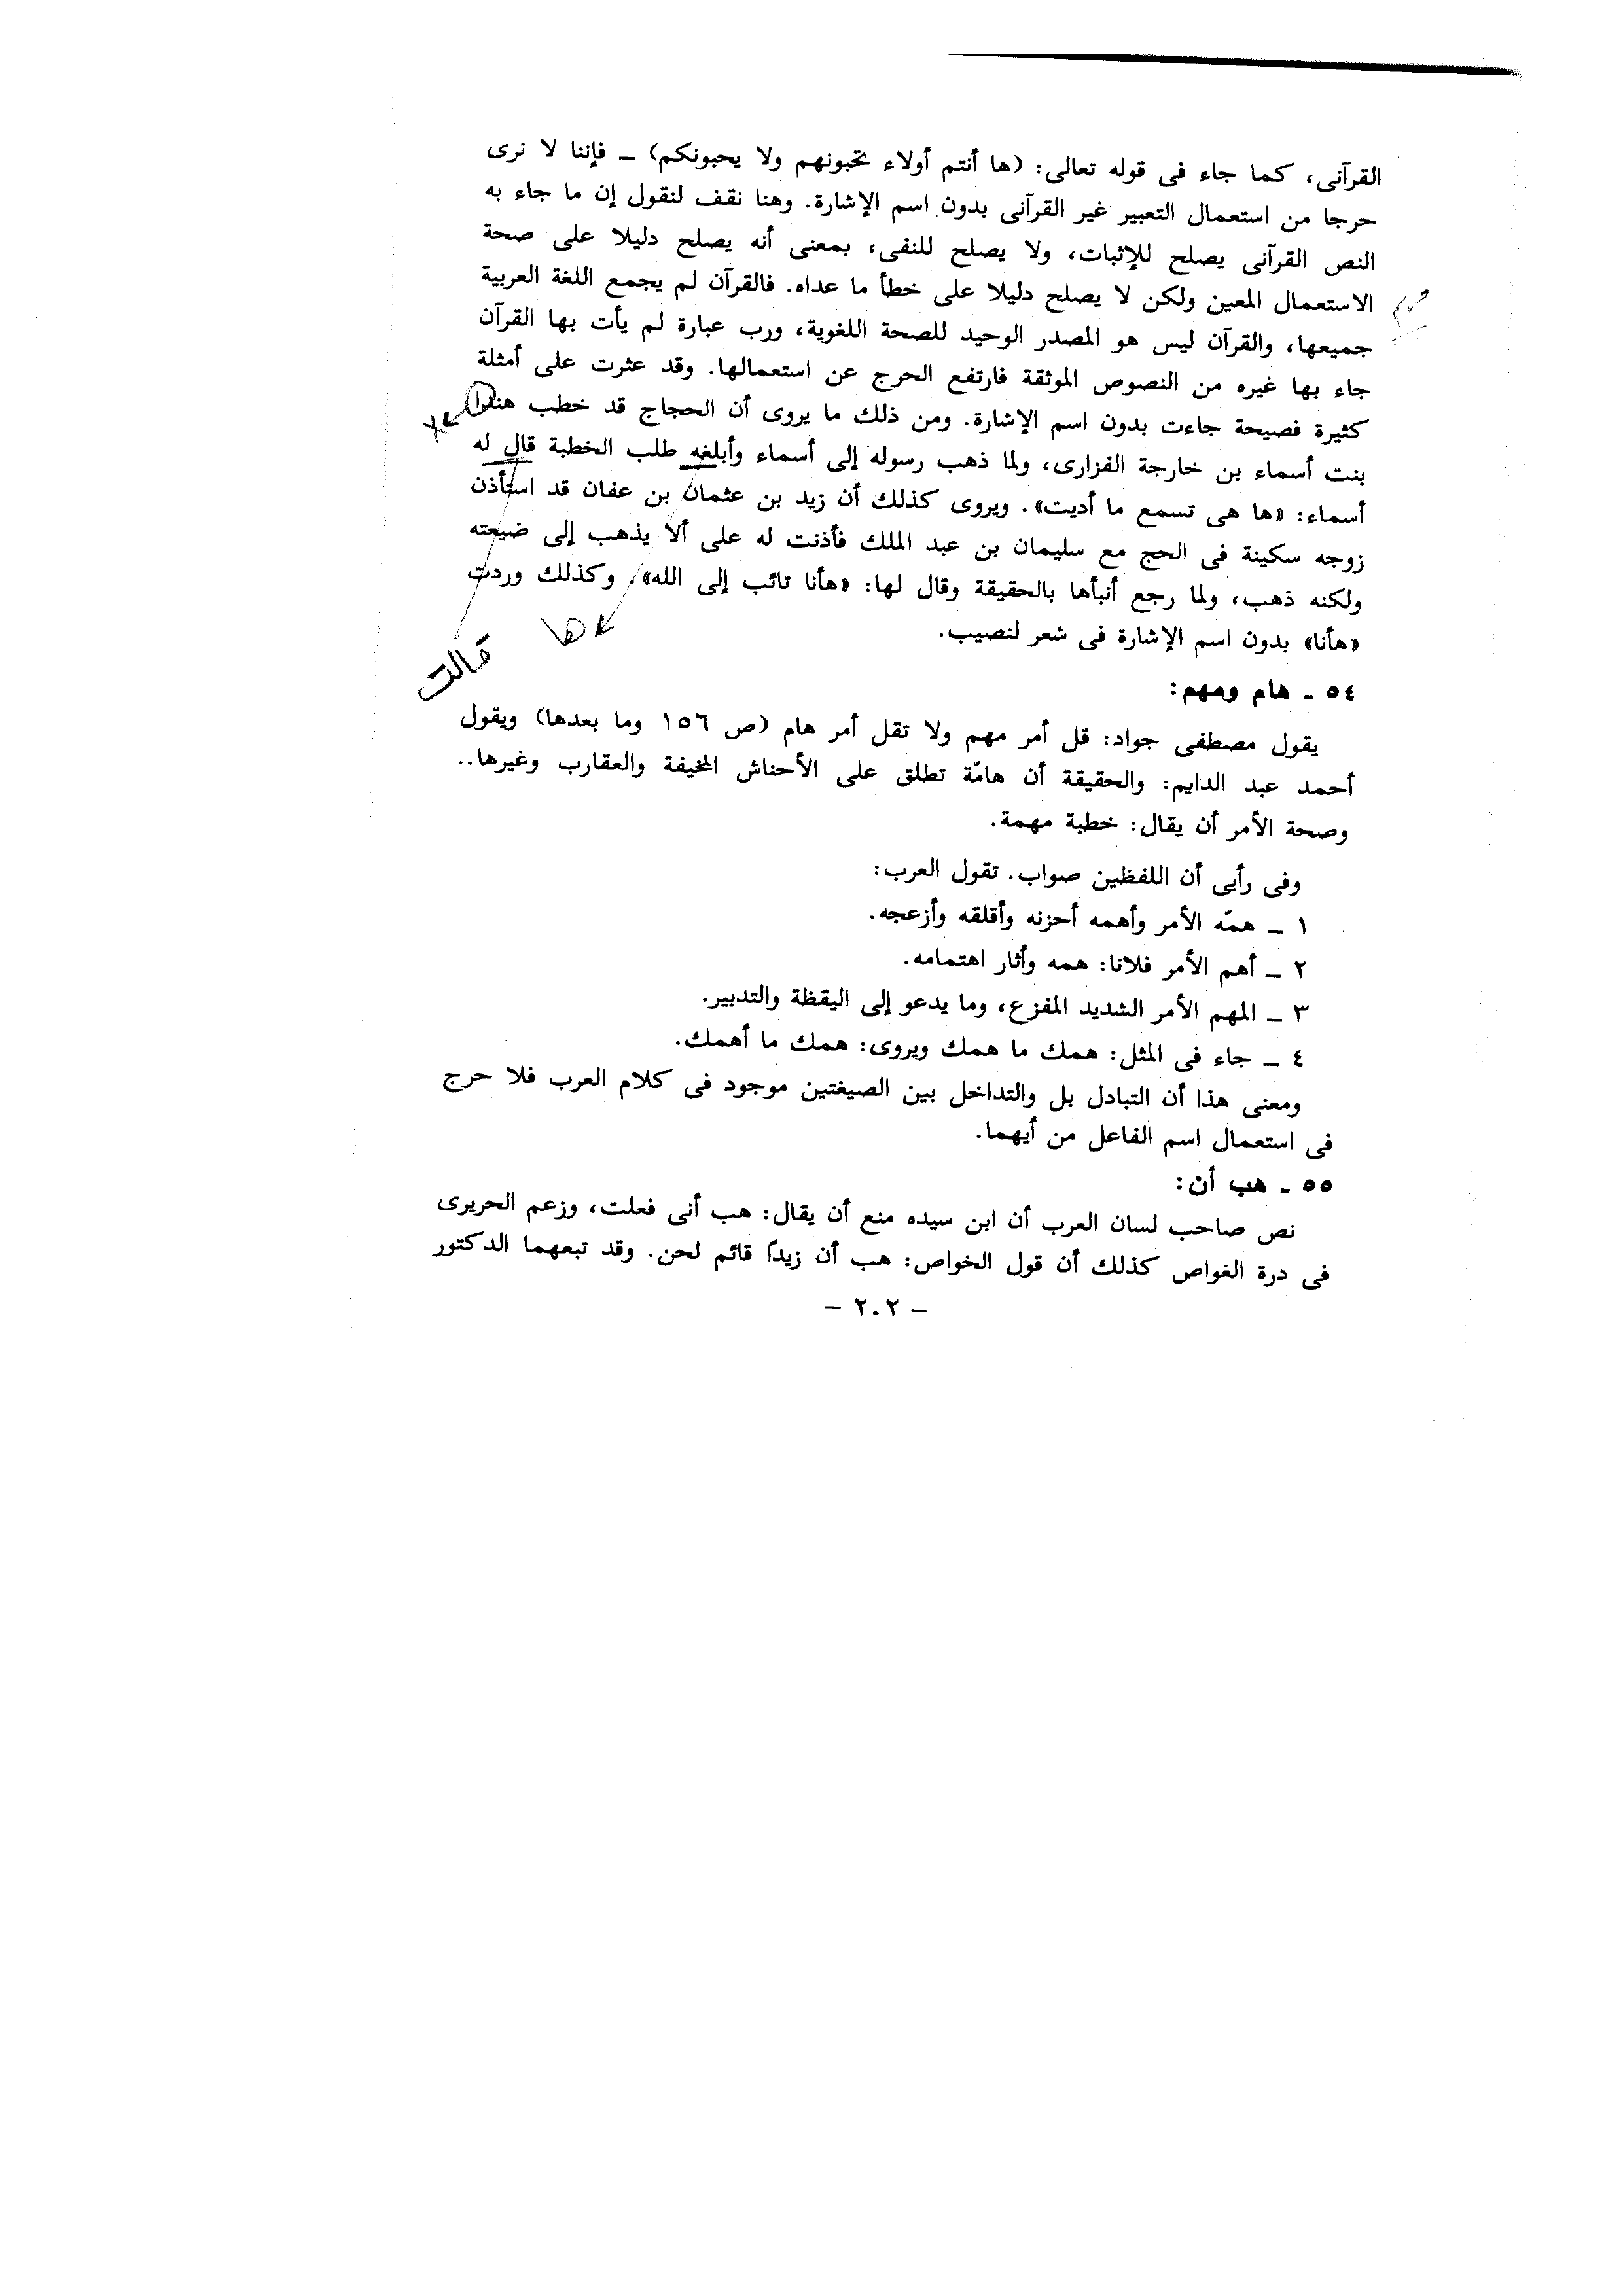 القرآنى، كما جاء فى قوله تعالى: (ها أنتم أولاء تحبونهم ولا يحبونكم) ــ فإننا لا نرى
حرجا من استعمال التعبير غير القرآنى بدون اسم الإشارة. وهنا نقف لنقول إن ما جاء به
النص القرآنى يصلح للإثبات، ولا يصلح للنفى، بمعنى أنه يصلح دليلا على صحة
الاستعمال المعين ولكن لا يصلح دليلا على خطأ ما عداه. فالقرآن لم يجمع اللغة العربية
جميعها، والقرآن ليس هو المصدر الوحيد للصحة اللغوية، ورب عبارة لم يأت بها القرآن
جاء بها غيره من النصوص الموثقة فارتفع الحرج عن استعمالها. وقد عثرت على أمثلة
كثيرة فصيحة جاءت بدون اسم الإشارة. ومن ذلك ما يروى أن الحجاج قد خطب هندا
بنت أسماء بن خارجة الفزارى، ولما ذهب رسوله إلى أسماء وأبلغه طلب الخطبة قال له
أسماء: «ها هى تسمع ما أديت». ويروى كذلك أن زيد بن عثمان بن عفان قد استأذن
زوجه سكينة فى الحج مع سليمان بن عبد الملك فأذنت له على ألا يذهب إلى ضيعته
ولكنه ذهب، ولما رجع أنبأها بالحقيقة وقال لها: «هأنا تائب إلى الله». وكذلك وردت
«هأنا» بدون اسم الإشارة فى شعر لنصيب.
ها
قالت
٥٤ ـ هام ومهم:
يقول مصطفى جواد: قل أمر مهم ولا تقل أمر هام (ص ١٥٦ وما بعدها) ويقول
أحمد عبد الدايم: والحقيقة أن هامّة تطلق على الأحناش المخيفة والعقارب وغيرها..
وصحة الأمر أن يقال: خطبة مهمة.
وفى رأيى أن اللفظين صواب. تقول العرب:
١ ــ همّه الأمر وأهمه أحزنه وأقلقه وأزعجه.
٢ ــ أهم الأمر فلانا: همه وأثار اهتمامه.
٣ ــ المهم الأمر الشديد المفزع، وما يدعو إلى اليقظة والتدبير.
٤ ــ جاء فى المثل: همك ما همك ويروى: همك ما أهمك.
ومعنى هذا أن التبادل بل والتداخل بين الصيغتين موجود فى كلام العرب فلا حرج
فى استعمال اسم الفاعل من أيهما.
٥٥ ـ هب أن:
نص صاحب لسان العرب أن ابن سيده منع أن يقال: هب أنى فعلت، وزعم الحريرى
فى درة الغواص كذلك أن قول الخواص: هب أن زيداً قائم لحن. وقد تبعهما الدكتور
– ٢٠٢ –